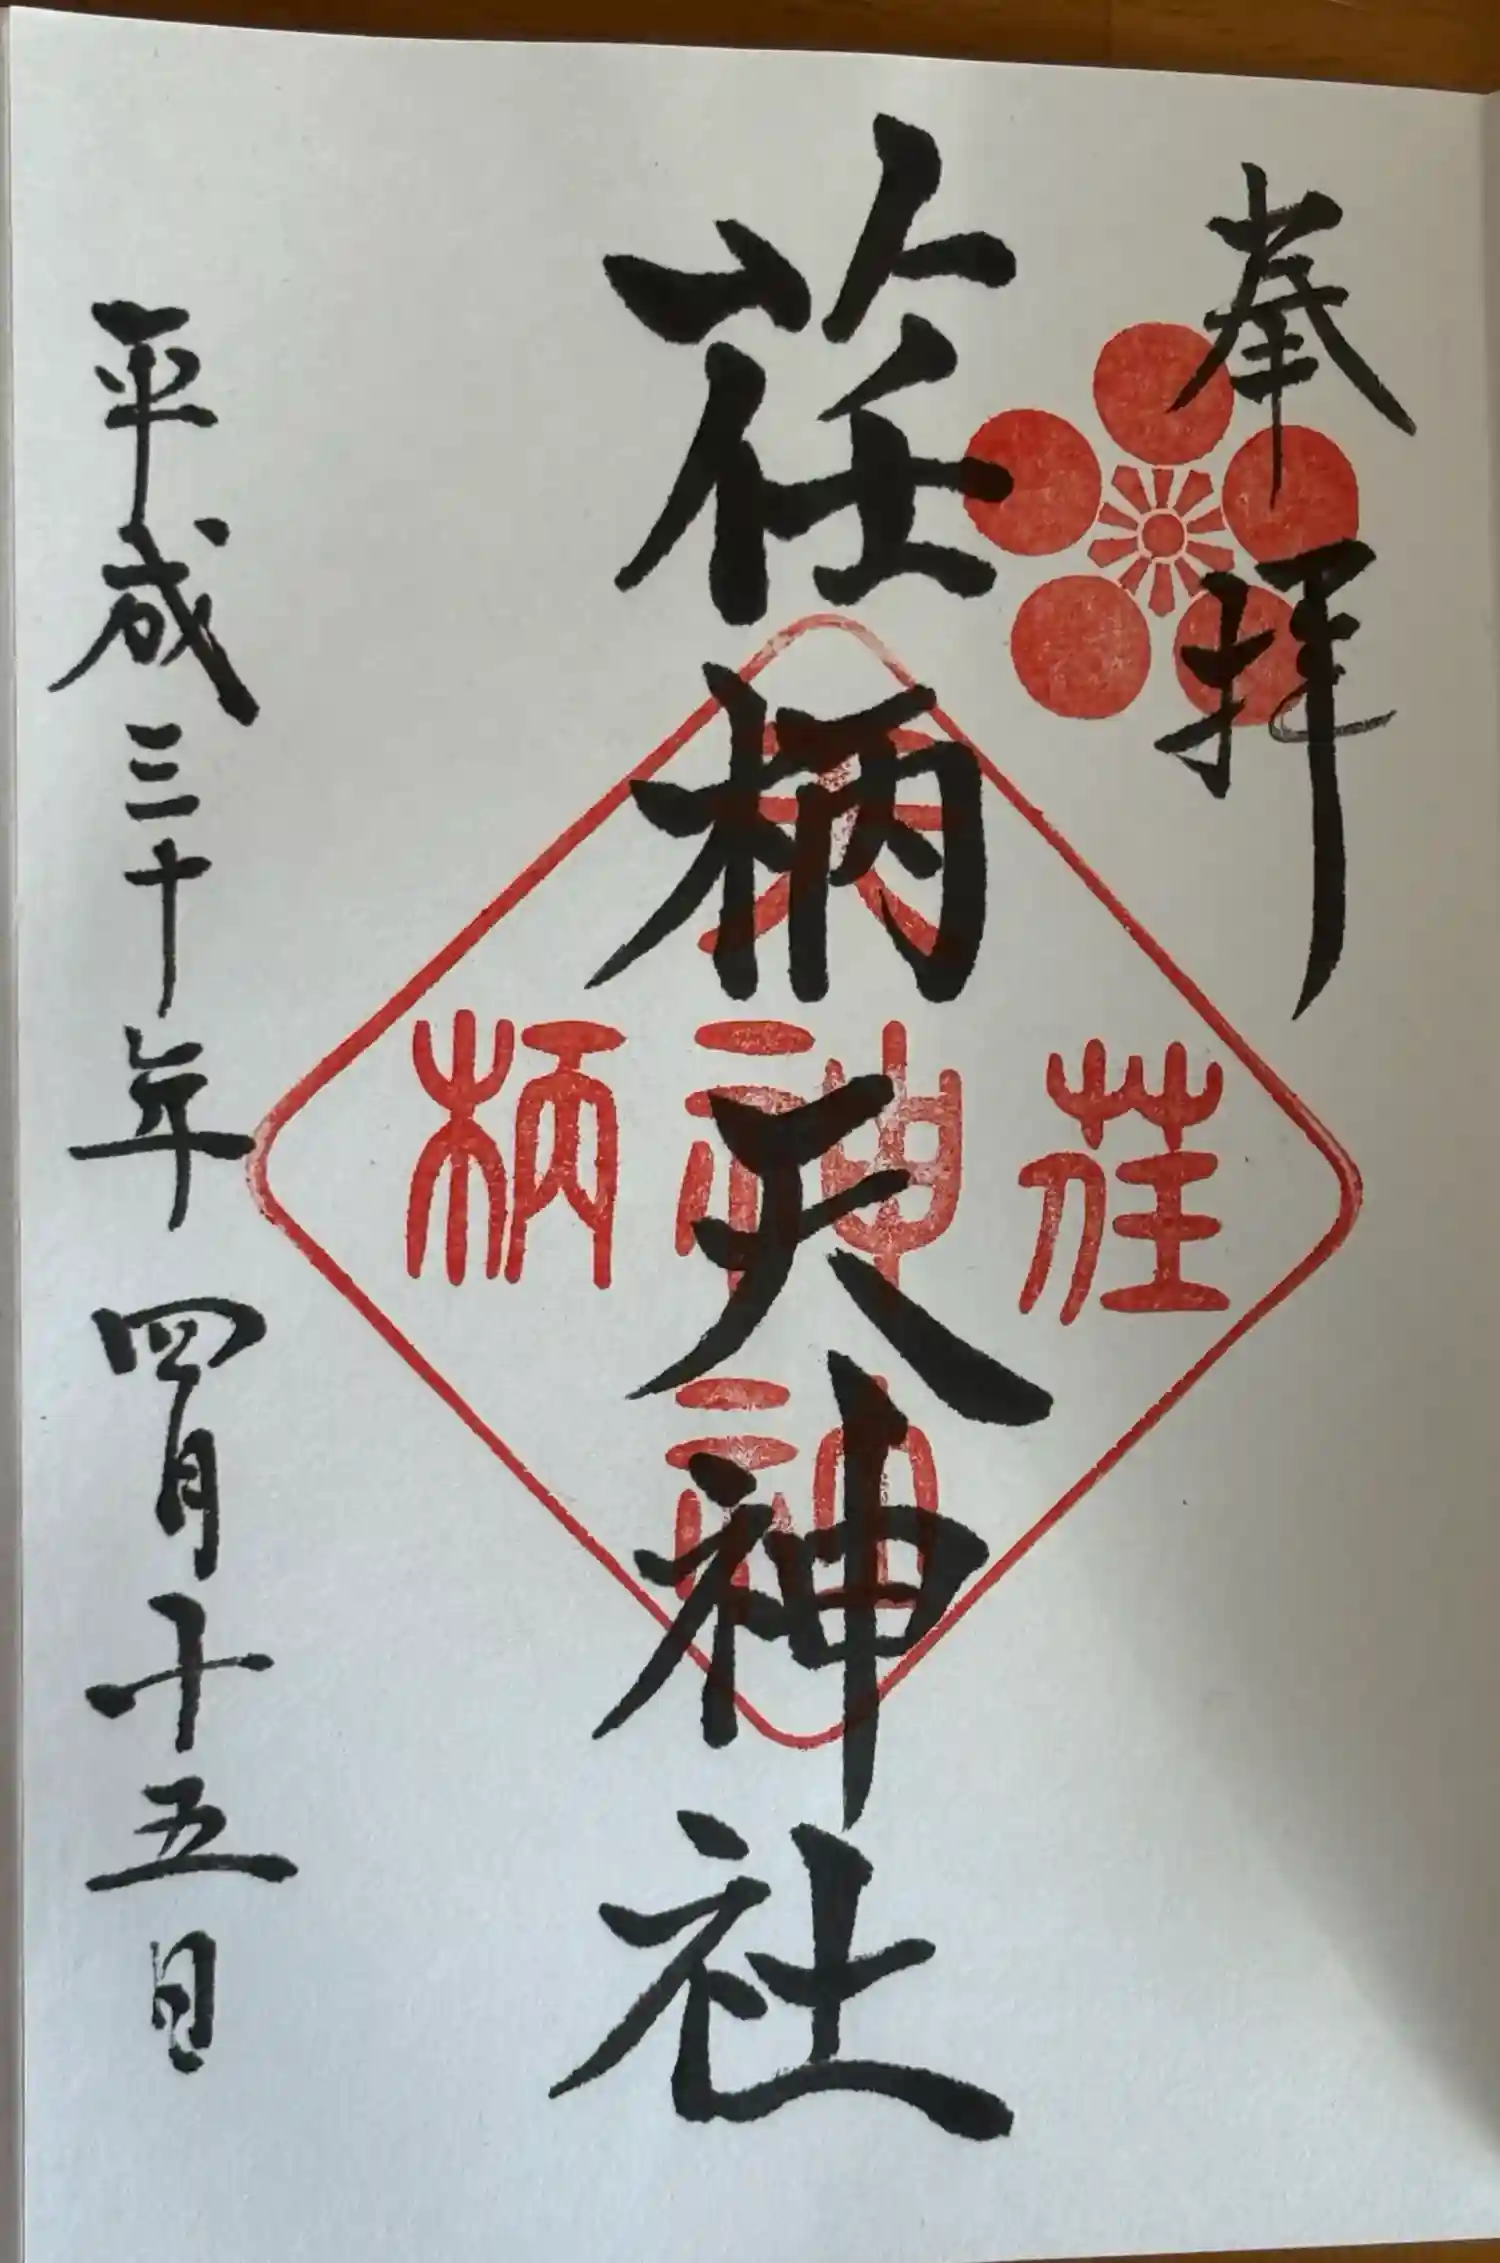 奉拝
荏柄天神社
平成三十年四月十五日
荏
柄
天
神
社